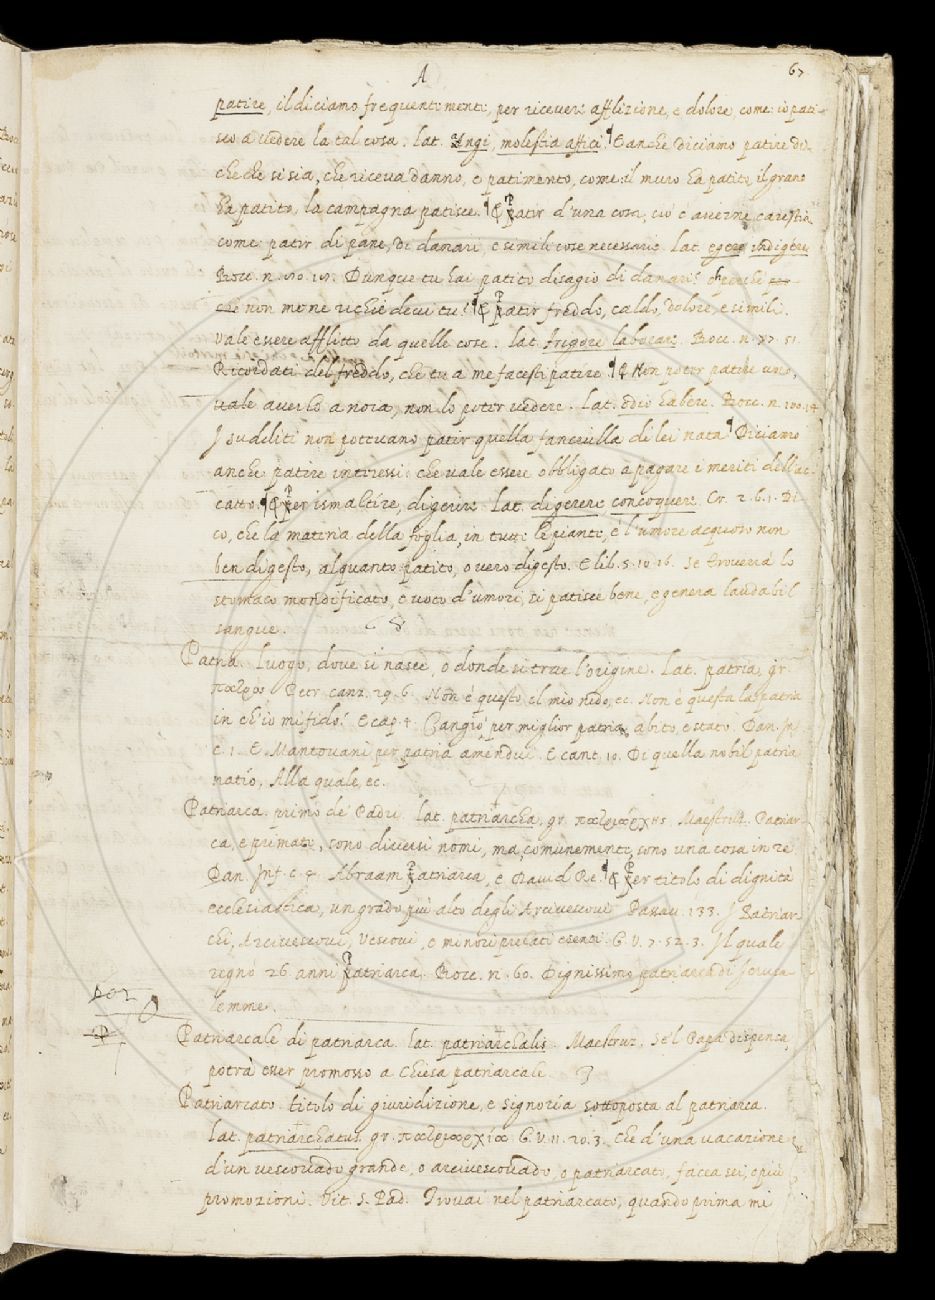 A
67
patire, il diciamo frequentemente, per ricevere afflizione, e dolore come: io pati-
sco a vedere la tal cosa. lat. angi, molestia affici. ¶ E anche diciamo patire di
che che si sia, che riceva danno, e patimento, come il muro ha patito, il grano
ha patito, la campagna patisce. ¶ E Patir d'una cosa, cio è averne carestia
come patir di pane, di danari, e simili cose necessarie. Lat. egere indigere
Bocc. n. Dunque tu hai patito disagio di danari? perchè
che non me ne richiedevi tu? ¶ E Patir freddo, caldo, dolore, e simili.
vale essere afflitto da quelle cose. lat. frigore laborare. Bocc. n. 77. 51.
Ricordati del freddo, che tu a me facesti patire ¶ E Non poter patire uno,
vale averlo a noia, non lo poter vedere. Lat. odio habere. Bocc. n. 100. 14
J sudditi non potevano patir quella fanciulla di lei nata ¶ Diciamo
anche patire interessi: che vale essere obbligato a pagare i meriti dell'ac-
catto. ¶ E Per ismaltire, digerire. Lat. digerere concoquere. Cr. 2. 6. 1. Di-
co, che la materia della foglia, in tutte le piante, è l'umore acquoso non
ben digesto, alquanto patito, overo digesto. E lib. 5. 10. 16. Se troverrà lo
stomaco mondificato, e voto d'umori, si patisce bene, e genera laudabil
sangue.
Patria. Luogo, dove si nasce, o donde si trae l'origine. Lat. patria, gr.
πατρίς Petr. canz. 29. 6. Non è questo el mio nido, ec. Non è questa la patria
in ch'io mi fido? E cap. 4. Cangiò per miglior patria, abito, e stato. Dan. Inf.
c. 1. E Mantovani per patria amendui. E cant. 10. Di quella nobil patria
natio, Alla quale, ec.
Patriarca. primo de' Padri. lat. patriarcha, gr. πατριάρχης. Maestruz. Patriar-
ca, e primate, sono diversi nomi, ma, comunemente, sono una cosa in re
Dan. Inf. c. 4. Abraam Patriarca, e David Re. ¶ E Per titolo di dignità
ecclesiastica, un grado più alto degli Arcivescovi Passav. 133. J Patriar-
chi, Arcivescovi, Vescovi, e minori prelati esenti. G. V. 7. 52. 3. Il quale
regnò 26. anni Patriarca. Bocc. n. 60. Dignissimo patriarca di Jerusa-
lemme.
Patriarcale di patriarca. lat. patriarchalis. Maestruz. Se'l Papa dispensa,
potrà esser promosso a Chiesa patriarcale
Patriarcato. titolo di giuridizione, e signoria sottoposta al patriarca.
Lat. patriarchatus. gr. πατριαρχία G. V. 11. 20. 3. Che d'una vacazione
d'un vescovado grande, o arcivescovado, o patriarcato, facea sei, e più
promozioni. Vit. S. Pad. Trovai nel patriarcato, quando prima mi